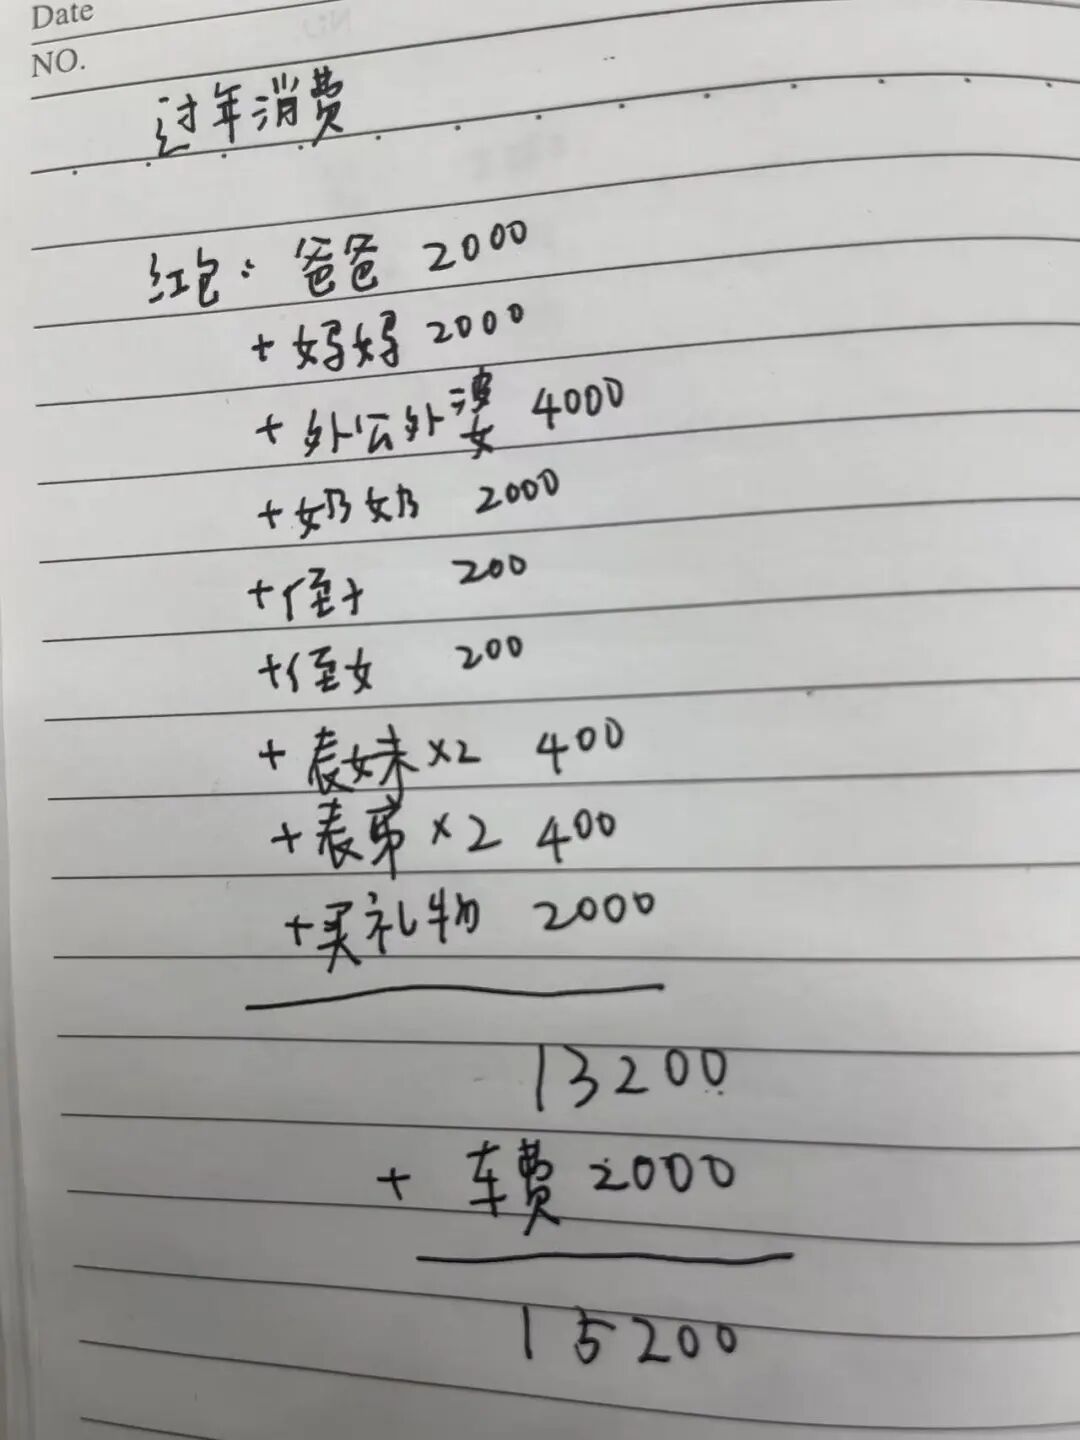 Date
NO.
过年消费
红包：爸爸 2000
+妈妈 2000
+外公外婆 4000
+奶奶 2000
+侄子 200
+侄女 200
+表妹×2 400
+表弟×2 400
+买礼物 2000
13200
+ 车费 2000
15200